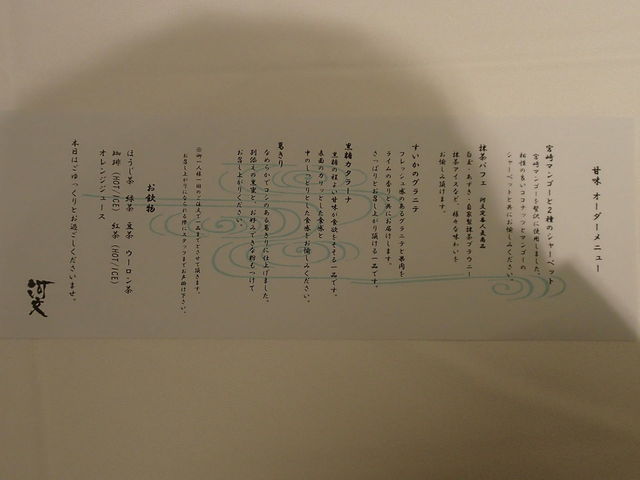 甘味 オーダーメニュー
宮崎マンゴーと2種のシャーベット
宮崎マンゴーを贅沢に使用しました。
相性の良いココナッツとマンゴーの
シャーベットと共にお愉しみください。
抹茶パフェ 河文定番人気商品
白玉・あずき・自家製抹茶ブラウニー
抹茶アイスなど、様々な味わいを
お愉しみ頂けます。
すいかのグラニテ
フレッシュ感のあるグラニテと果肉を
ライムの香りと共にお届けします。
さっぱりとお召し上がり頂ける一品です。
黒糖カタラーナ
黒糖の程よい甘味が食欲をそそる一品です。
表面のカリッとした食感と
中のしっとりとした食感をお愉しみください。
葛きり
なめらかでコシのある葛きりに仕上げました。
別添えの黒蜜と、お好みできな粉もつけて
お召し上がりください。
※御一人様一回のご注文で一品までとさせて頂きます。
お召し上がりになられる際にスタッフまでお声掛け下さい。
お飲物
ほうじ茶 緑茶 豆茶 ウーロン茶
珈琲(HOT/ICE) 紅茶(HOT/ICE)
オレンジジュース
本日はごゆっくりとお過ごしくださいませ。
河文